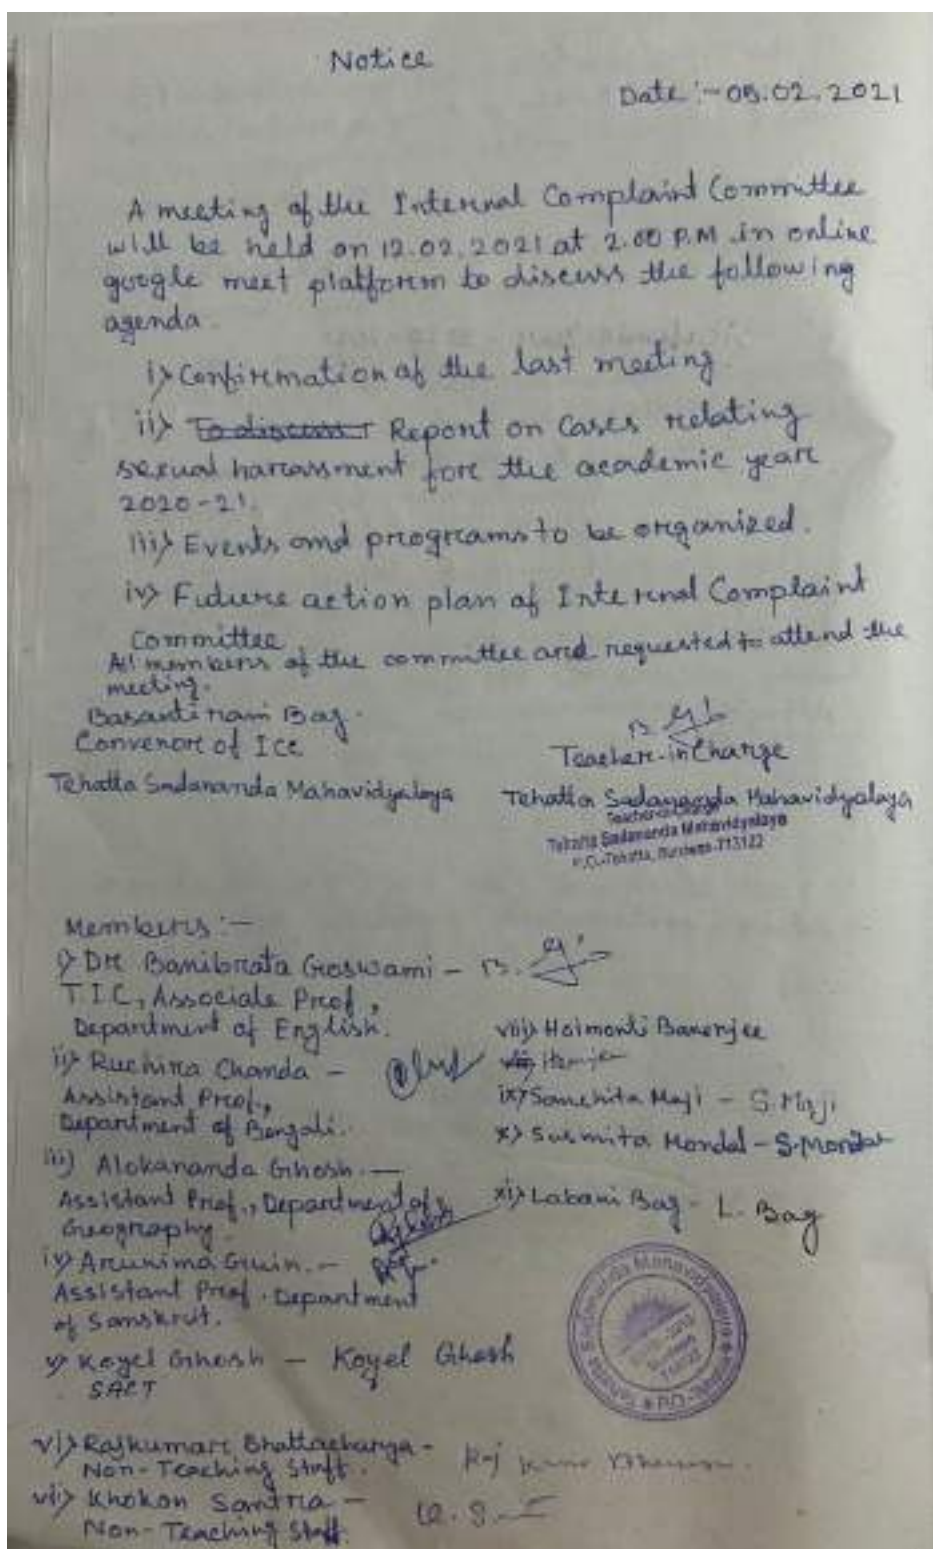 Notice
Date :- 05.02.2021
A meeting of the Internal Complaint Committee
will be held on 12.02.2021 at 2.00 P.M in online
google meet platform to discuss the following
agenda.
i) Confirmation of the last meeting.
ii) To discuss Report on Cases relating
sexual harassment for the academic year
2020-21.
iii) Events and programs to be organized.
iv) Future action plan of Internal Complaint
Committee
All members of the committee and requested to attend the
meeting.
Basanti rani Bag.
Convenor of ICC
Tehatta Sadananda Mahavidyalaya
Teacher-in Charge
Tehatta Sadananda Mahavidyalaya
Teacher-in-Charge
Tehatta Sadananda Mahavidyalaya
P.O.-Tehatta, Burdwan-713122
Members :-
i) Dr Banibrata Goswami -
T.I.C, Associate Prof,
Department of English.
ii) Ruchira Chanda -
Assistant Prof.,
Department of Bengali.
iii) Alokananda Ghosh. -
Assistant Prof., Department of
Geography.
iv) Arunima Guin. -
Assistant Prof. Department
of Sanskrit.
v) Koyel Ghosh - Koyel Ghosh
SACT
vi) Rajkumar Bhattacharya -
Non-Teaching Staff.
vii) Khokon Santra - K.S.
Non-Teaching Staff.
viii) Haimonti Banerjee
ix) Sanchita Maji - S. Maji
x) Susmita Mondal - S. Mondal
xi) Labani Bag - L. Bag